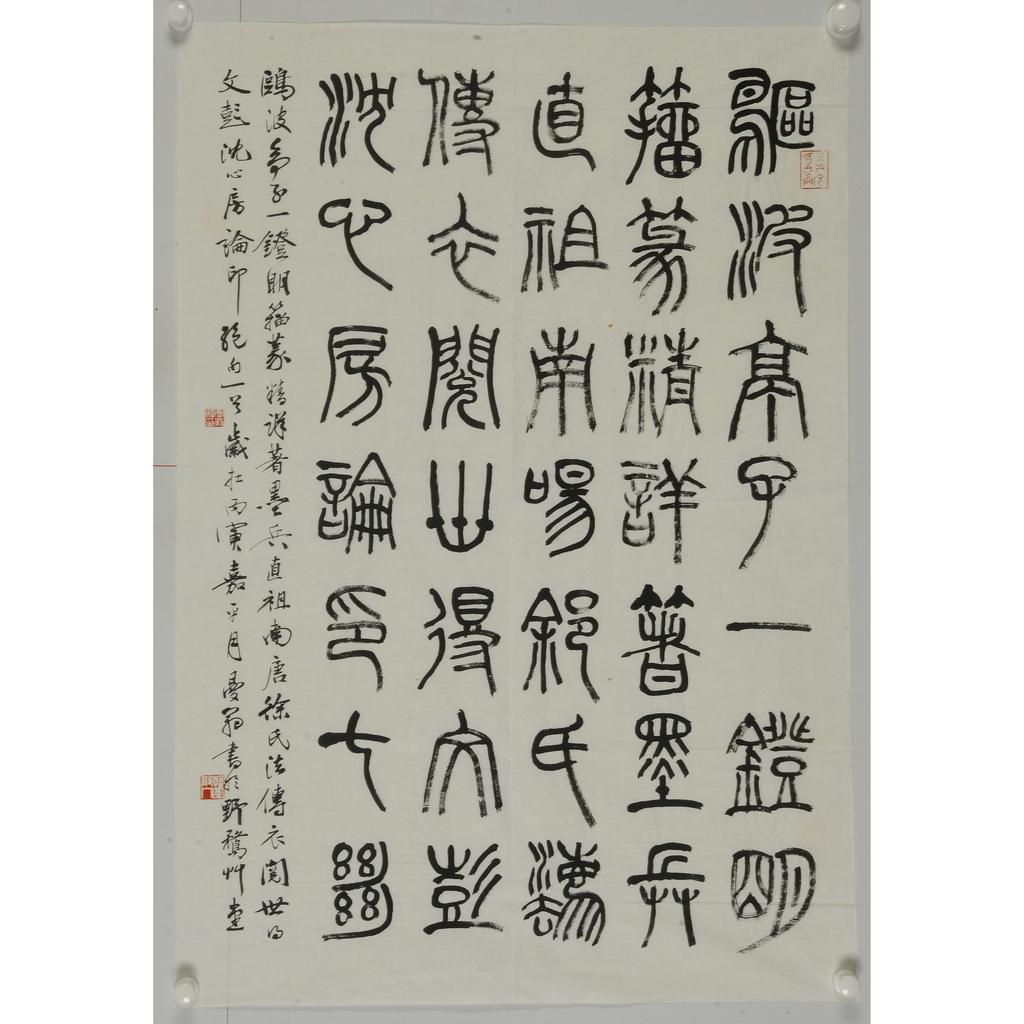 鷗波亭子一鐙明
籀篆精詳著墨兵
直祖南啺䣄氏灋
傳衣閱世得文彭
沈心房論印七𢇍
鷗波亭子一鐙明籀篆精詳著墨兵直祖南唐徐氏法傳衣閱世得
文彭沈心房論印絕句一首歲在丙寅嘉平月曼翁書於野鶩艸堂